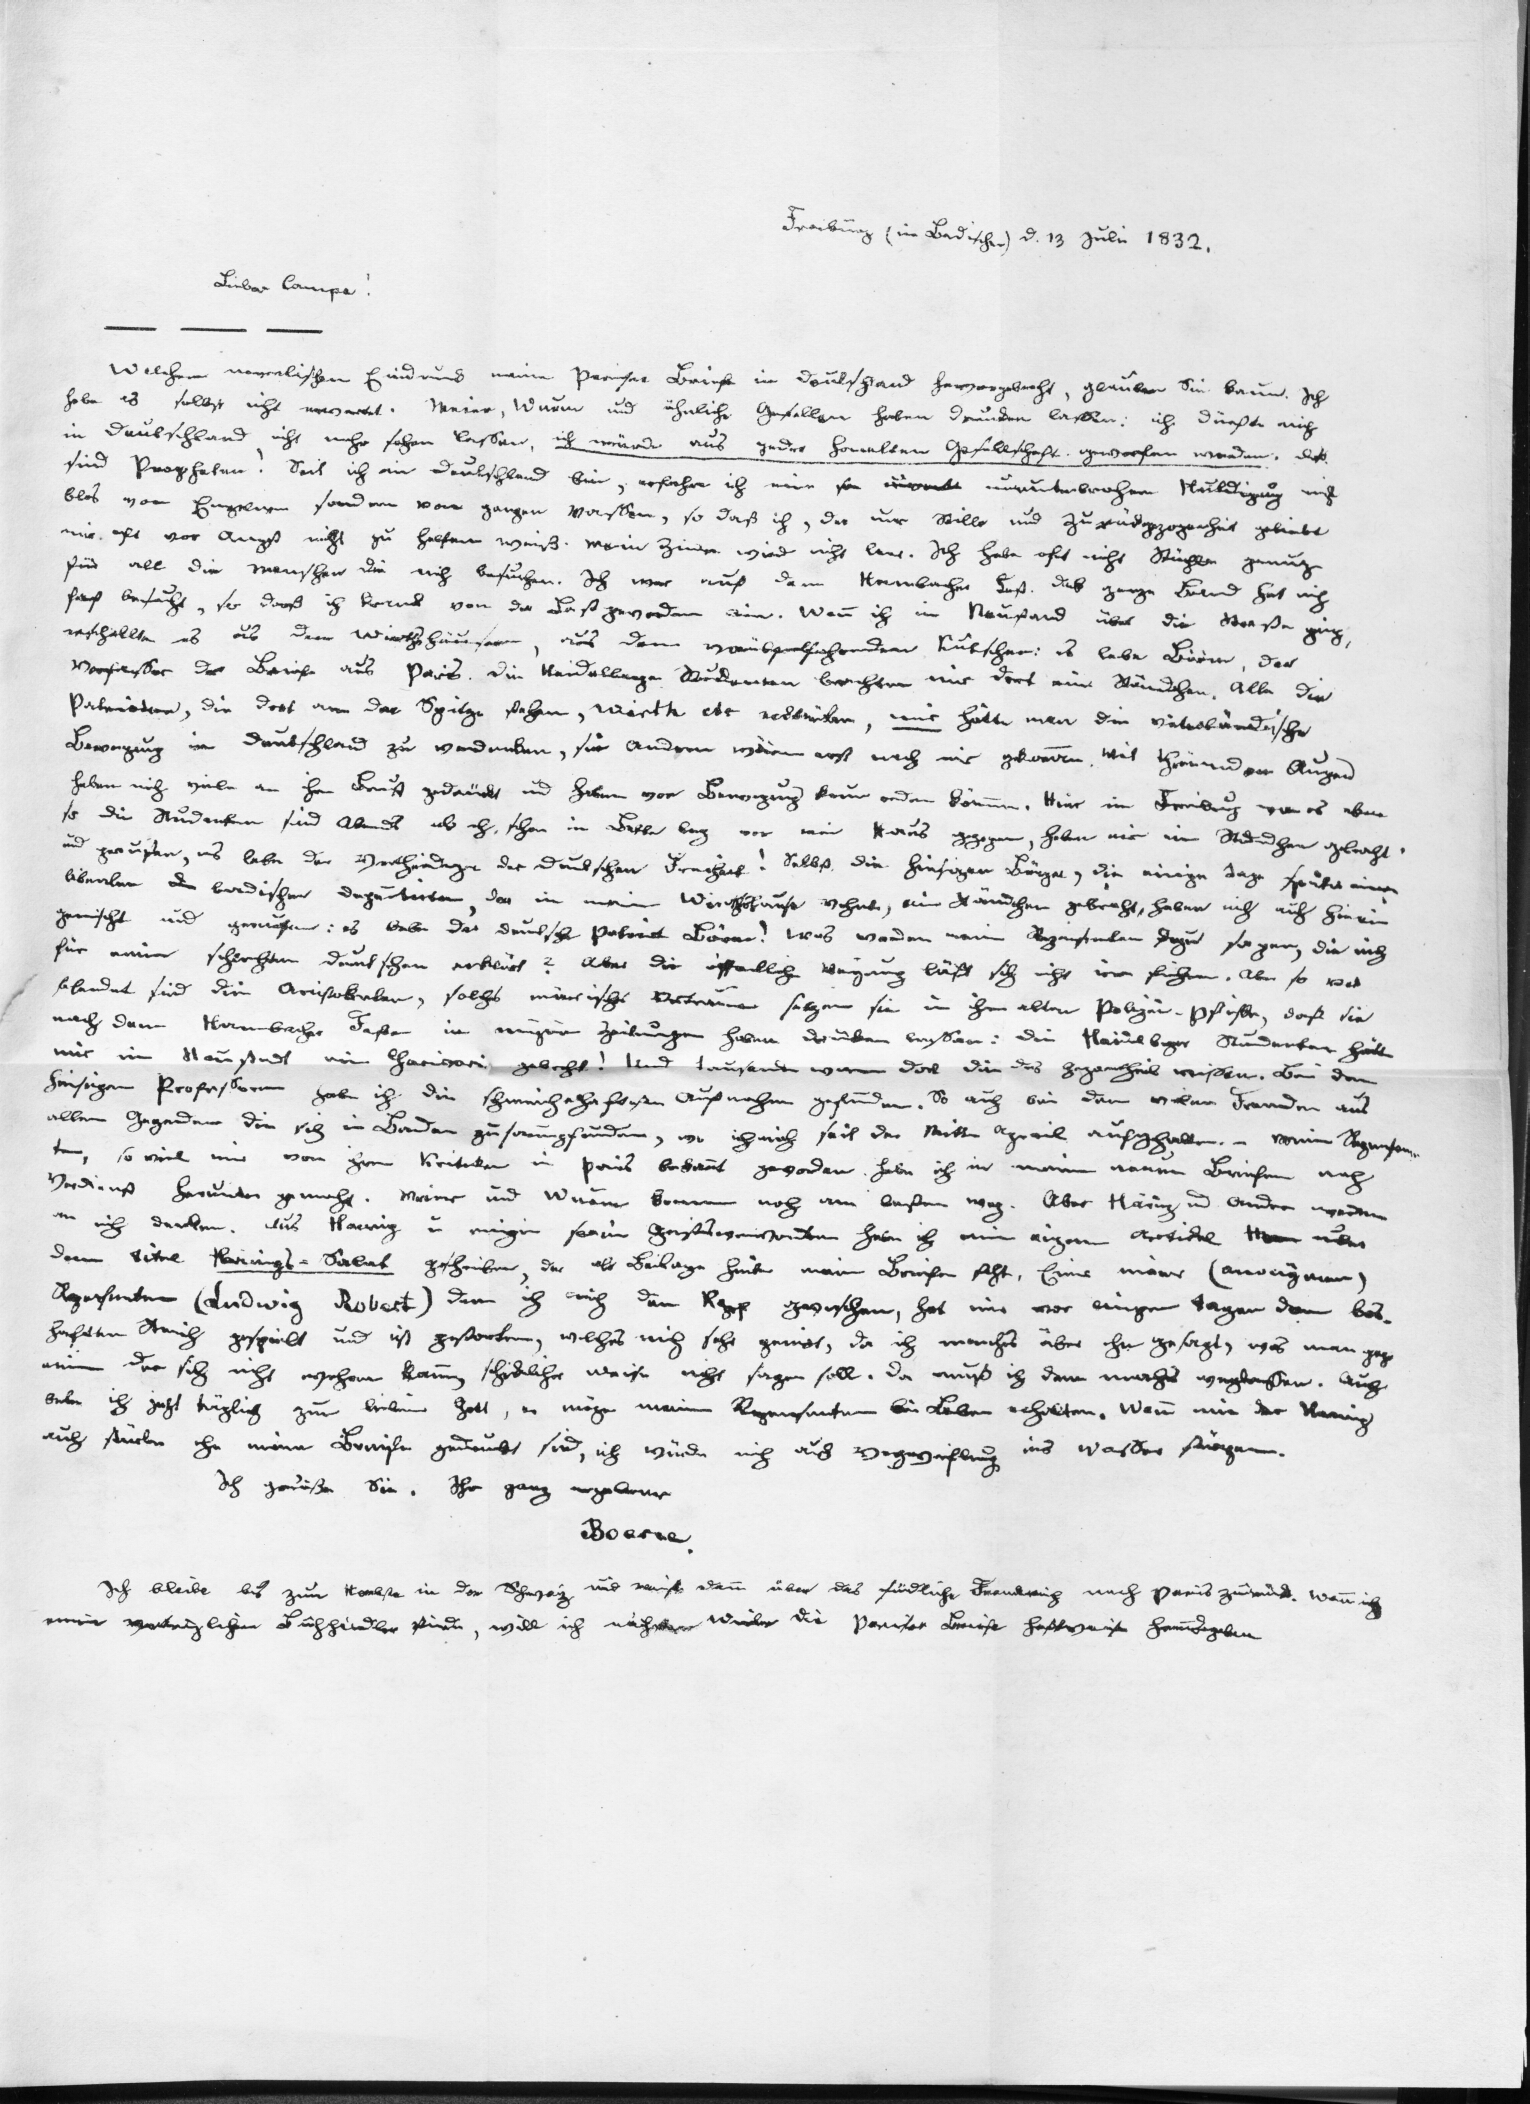 Freiburg (im Badischen) d. 13 Juli 1832.
Lieber Campe!
Welchen moralischen Eindruck meine Pariser Briefe in Deutschland hervorgebracht, glauben Sie kaum. Ich
habe es selbst nicht erwartet. Meier, Wurm und ähnliche Gesellen haben drucken lassen: ich dürfte mich
in Deutschland nicht mehr sehen lassen, ich würde aus jeder honetten Gesellschaft geworfen werden. Das
sind Propheten! Seit ich in Deutschland bin, erfahre ich eine ununterbrochene Huldigung nicht
blos von Einzelnen sondern von ganzen Massen, so daß ich, der nur Stille und Zurückgezogenheit geliebt
mir oft vor Angst nicht zu helfen weiß. Mein Zimmer wird nicht leer. Ich habe oft nicht Stühle genug
für all die Menschen die mich besuchen. Ich war auf dem Hambacher Fest. Das ganze Land hat mich
fast besucht, so daß ich krank von der Last geworden bin. Wenn ich in Neustadt über die Straße ging,
erschallte es aus den Wirthshäusern, aus den vorüberfahrenden Kutschen: es lebe Börne, der
Verfasser der Briefe aus Paris. Die Heidelberger Studenten brachten mir dort ein Ständchen. Alle die
Patrioten, die dort an der Spitze stehen, Wirth etc erklärten, mir hätte man die vaterländische
Bewegung in Deutschland zu verdanken, die Andern wären erst nach mir gekommen. Mit thränenden Augen
haben mich viele an ihre Brust gedrückt und haben vor Bewegung kaum reden können. Hier in Freiburg war es eben
so die Studenten sind Abends als ich schon im Bette lag vor mein Haus gezogen, haben mir ein Ständchen gebracht
und gerufen, es lebe der Vertheidiger der deutschen Freiheit! Selbst die hiesigen Bürger, die einige Tage später einem
liberalen badischen Deputirten, der in meinem Wirthshause wohnte, ein Ständchen gebracht, haben mich auch hierin
gemischt und gerufen: es lebe der deutsche Patriot Börne! Was werden meine Rezensenten dazu sagen, die mich
für einen schlechten Deutschen erklärt? Aber die öffentliche Meinung läßt sich nicht irre führen. Aber so
sind die Aristokraten, solches närrische Vertrauen setzen sie in ihre alten Polizei-Pfiffe, daß sie
nach dem Hambacher Feste in einigen Zeitungen haben drucken lassen: die Heidelberger Studenten hätten
mir in Neustadt ein Charivari gebracht! Und tausende waren doch die das Gegentheil wissen. Bei den
hiesigen Professoren habe ich die schmeichelhafteste Aufnahme gefunden. So auch bei den vielen Fremden aus
allen Gegenden die sich in Baden zusammenfanden, wo ich mich seit der Mitte April aufgehalten. – Meine Rezensen-
ten, so viel mir von ihren Kritiken in Paris bekannt geworden habe ich in meinen neuen Briefen nach
Verdienst herunter gemacht. Meier und Wurm kommen noch am besten weg. Aber Häring und Andre werden
an mich denken. Aus Haering u einigen seiner Geistesverwandten habe ich einen eigenen Artikel unter
dem Titel Haerings-Salat geschrieben, der als Beilage hinter meinen Briefen steht. Einer meiner (anonymen)
Rezensenten (Ludwig Robert) dem ich auch den Kopf gewaschen, hat mir vor einigen Tagen den bos-
haften Streich gespielt und ist gestorben, welches mich sehr genirt, da ich manches über ihn gesagt, was man gegen
einen der sich nicht wehren kann, schicklicher Weise nicht sagen soll. Da muß ich denn manches weglassen. Auch
bete ich jetzt täglich zum lieben Gott, er möge meine Rezensenten bei Leben erhalten. Wenn mir der Haering
auch stürbe ehe meine Briefe gedruckt sind, ich würde mich aus Verzweiflung ins Wasser stürzen.
Ich grüße Sie. Ihr ganz ergebener
Boerne.
Ich bleibe bis zum Herbste in der Schweiz und reise dann über das südliche Frankreich nach Paris zurück. Wenn ich
einen Buchhändler finde, will ich wieder die Pariser Briefe heftweise herausgeben